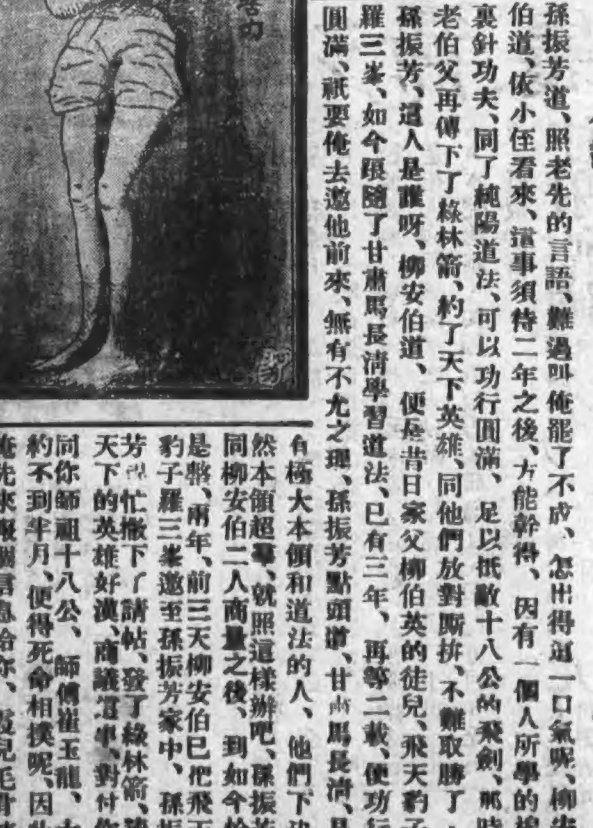 孫振芳道、照老先的言語、難過叫俺罷了不成、怎出得這一口氣呢、柳安
伯道、依小侄看來、這事須待二年之後、方能幹得、因有一個人所學的
裏針功夫、同了純陽道法、可以功行圓滿、足以抵敵十八公的飛劍、那時
老伯父再傳下了綠林箭、約了天下英雄、同他們放對厮拚、不難取勝了、
孫振芳、這人是誰呀、柳安伯道、便是昔日家父柳伯英的徒兒、飛天豹子
羅三峯、如今跟隨了甘肅馬長清學習道法、已有三年、再等二載、便功行
圓滿、祇要俺去邀他前來、無有不允之理、孫振芳點頭道、甘肅馬長清、
有極大本領和道法的人、他們下
然本領超羣、就照這樣辦吧、孫振芳
同柳安伯二人商量之後、到如今
是整、兩年、前三天柳安伯已把飛天
豹子羅三峯邀至孫振芳家中、孫振
芳忙撒下了請帖、發了綠林箭、
天下的英雄好漢、商議這事、對付
同你師祖十八公、師傅崔玉龍、
約不到半月、便得死命相撲呢、因
俺先來報個信息給你、霞兒毛